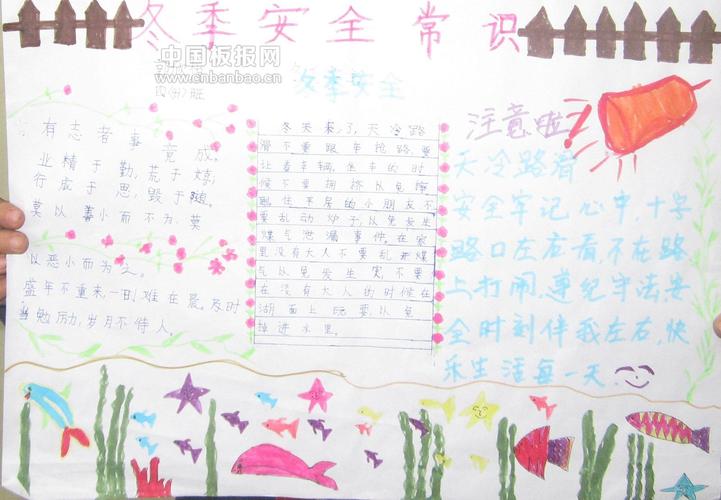 冬季安全常识
中国板报网
www.cnbanbao.cn
四(廿)班
冬季安全
有志者事竟成,
业精于勤,荒于嬉,
行成于思,毁于随。
莫以善小而不为,莫
以恶小而为之。
盛年不重来,一日难在晨。及时
当勉厉力,岁月不待人。
冬天来了,天冷路
滑不要跟车抢路要
让着车辆,坐车的时
候不要拥挤以免
住平房的小朋友不
要乱动炉子以免发生
煤气泄漏事件。在家
里没有大人不要乱开煤
气以免发生 不要
在没有大人的时候在
湖面上玩耍,以免
掉进水里。
注意啦!
天冷路滑
安全牢记心中十字
路口左右看,不在路
上打闹,遵纪守法,安
全时刻伴我左右,快
乐生活每一天.